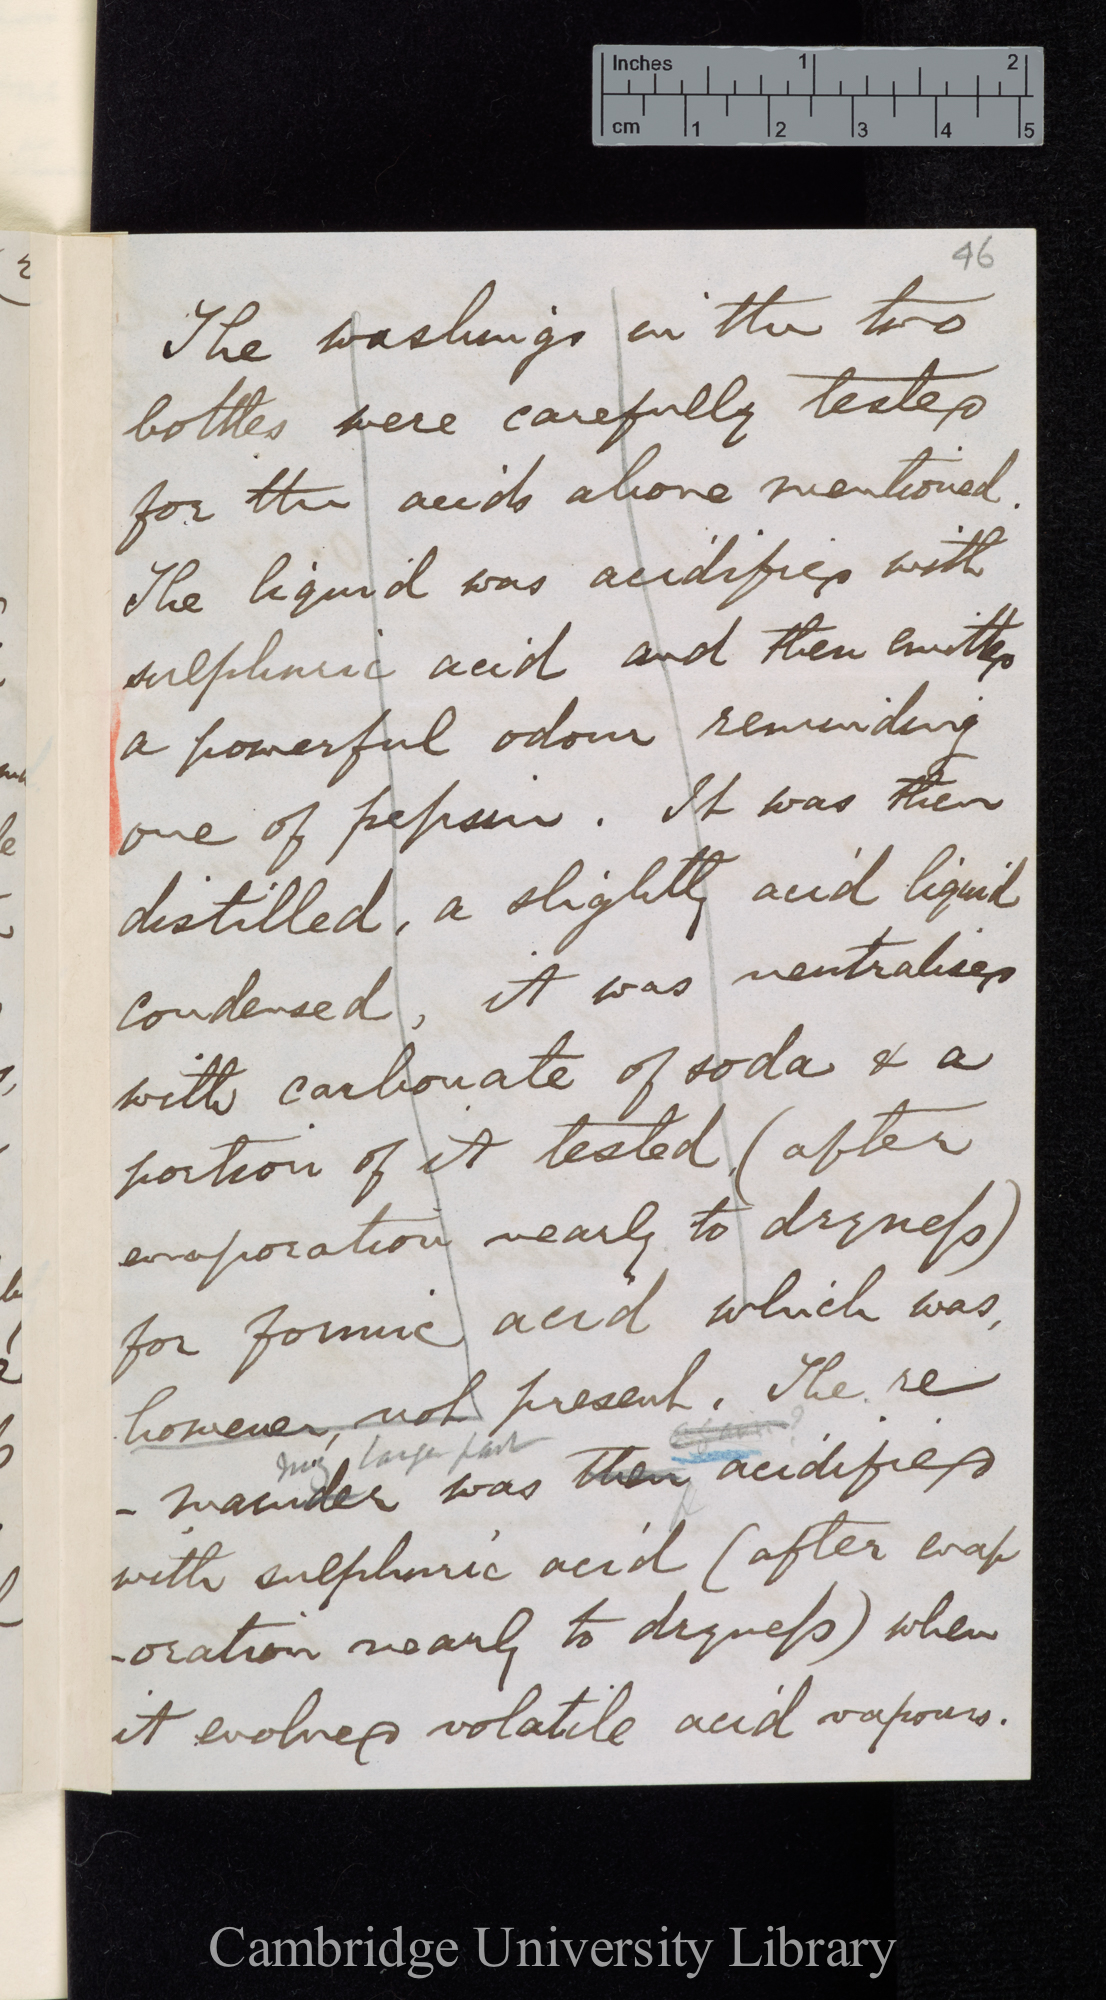 Inches 1 2
cm 1 2 3 4 5
46
The washings in the two
bottles were carefully tested
for the acids above mentioned.
The liquid was acidified with
sulphuric acid and then emitted
a powerful odour reminding
one of pepsin. It was then
distilled, a slightly acid liquid
condensed, it was neutralised
with carbonate of soda & a
portion of it tested, (after
evaporation nearly to dryneſs)
for formic acid which was,
however, not present. The re
again?
larger part
- mainder was then acidified
with sulphuric acid (after evap
-oration nearly to dryneſs) when
it evolved volatile acid vapours.
Cambridge University Library